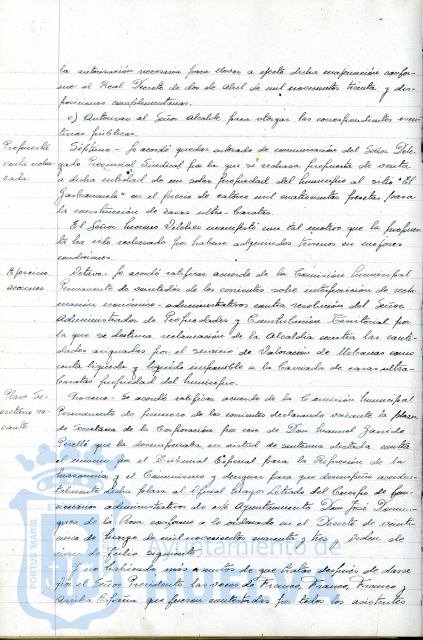 la autorización necesaria para llevar a efecto dicha enajenación confor-
me al Real Decreto de dos de Abril de mil novecientos treinta y dis-
posiciones complementarias.
c) Autorizar al Señor Alcalde para otorgar las correspondientes escri-
turas públicas.
Propuesta
venta recha-
zada.
Séptimo.- Se acordó quedar enterado de comunicación del Señor Dele-
gado Provincial Sindical por la que se rechaza propuesta de venta
a dicha entidad de un solar propiedad del municipio al sitio "El
en el precio de catorce mil cuatrocientas pesetas para
la construcción de casas ultra-baratas.
El Señor Moreno manifestó con tal motivo que la propues-
ta ha sido rechazada por haberse adquirido terrenos en mejores
condiciones.
Ejercicio
acciones.
Octavo.- Se acordó ratificar acuerdo de la Comisión Municipal
Permanente de veintidos de los corrientes sobre interposición de recla-
mación económico-administrativa contra resolución del Señor
Administrador de Propiedades y Contribución Territorial por
la que se destina reclamación de la Alcaldía contra las canti-
dades asignadas por el servicio de Valoración de Urbanas como
renta líquida y líquido imponible a la barriada de casas ultra-
baratas propiedad del municipio.
Plaza Se-
cretario va-
cante
Noveno.- Se acordó ratificar acuerdo de la Comisión Municipal
Permanente de primero de los corrientes declarando vacante la plaza
de Secretario de la Corporación por cese de Don Manuel Garrido
Perelló que la desempeñaba en virtud de sentencia dictada contra
el mismo por el Tribunal Especial para la Represión de la
Masonería y el Comunismo y designar para que desempeñe acciden-
talmente dicha plaza al Oficial Mayor Letrado del Cuerpo de Fun-
cionarios administrativos de este Ayuntamiento Don José Domín-
guez de la Rosa conforme a lo ordenado en el Decreto de veinti-
uno de Marzo de mil novecientos cuarenta y tres y orden de
cinco de Julio siguiente.
Y no habiendo más asuntos de que tratar después de darse
por el Señor Presidente las voces de Franco, Franco, Franco y
Arriba España que fueron contestadas por todos los asistentes
PORTUS MARIS
Ayuntamiento de